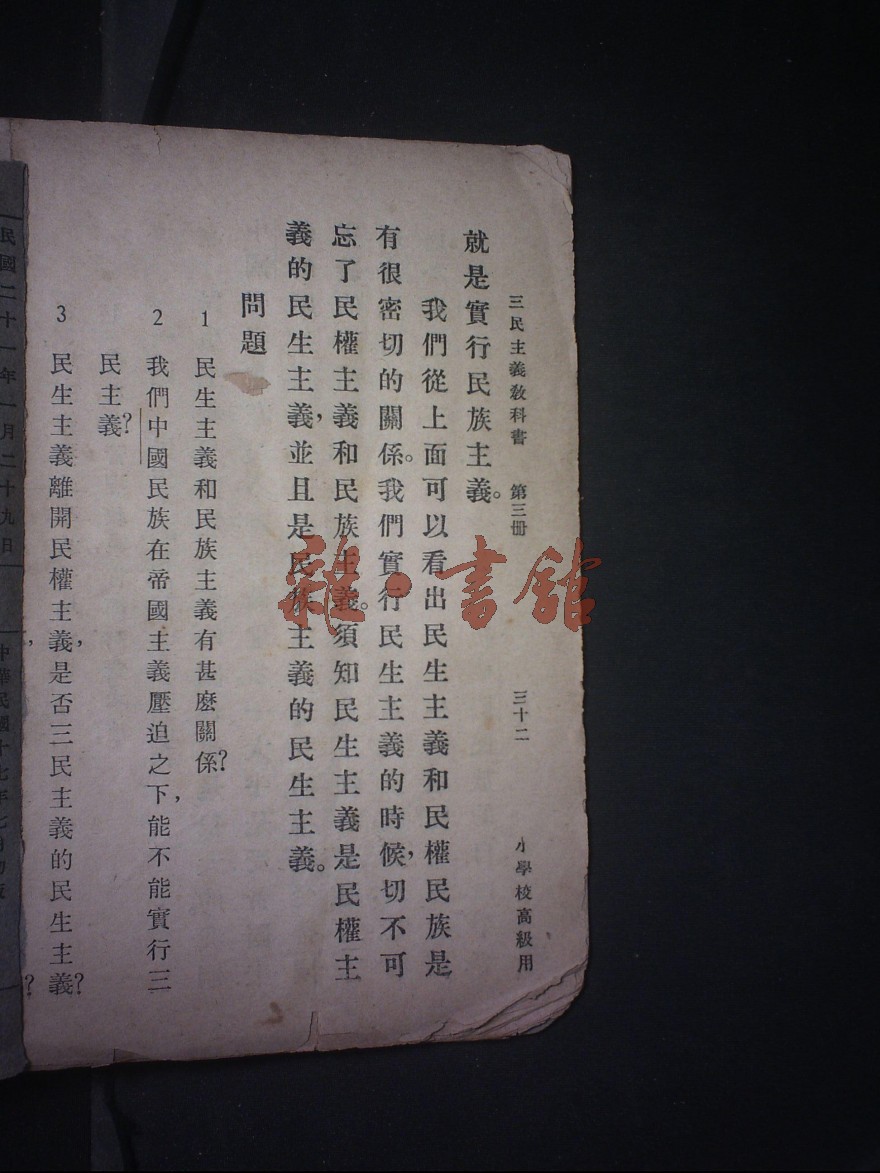 三民主義教科書 第三冊 三十二 小學校高級用
就是實行民族主義。
我們從上面可以看出民生主義和民權民族是
有很密切的關係。我們實行民生主義的時候,切不可
忘了民權主義和民族主義。須知民生主義是民權主
義的民生主義,並且是民族主義的民生主義。
問題
1 民生主義和民族主義有甚麼關係?
2 我們中國民族在帝國主義壓迫之下,能不能實行三
民主義?
3 民生主義離開民權主義,是否三民主義的民生主義?
民國二十一年一月二十九日
中華民國十七年七月初版
雜·書館